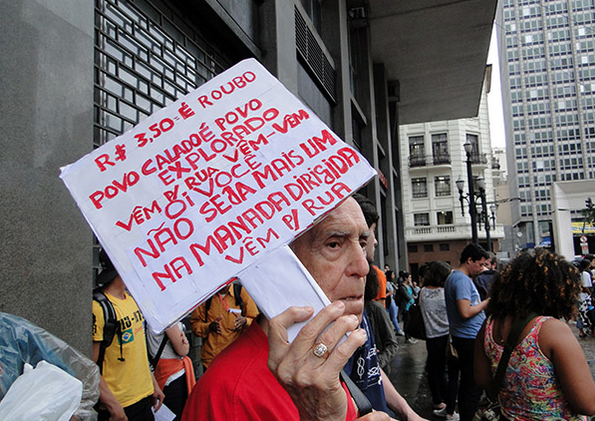 R$ 3,50 = É ROUBO
POVO CALADO É POVO
EXPLORADO
VÊM P/ RUA VÊM-VÊM
OI VOCÊ
NÃO SEJA MAIS UM
NA MANADA DIRIGIDA
VÊM P/ RUA